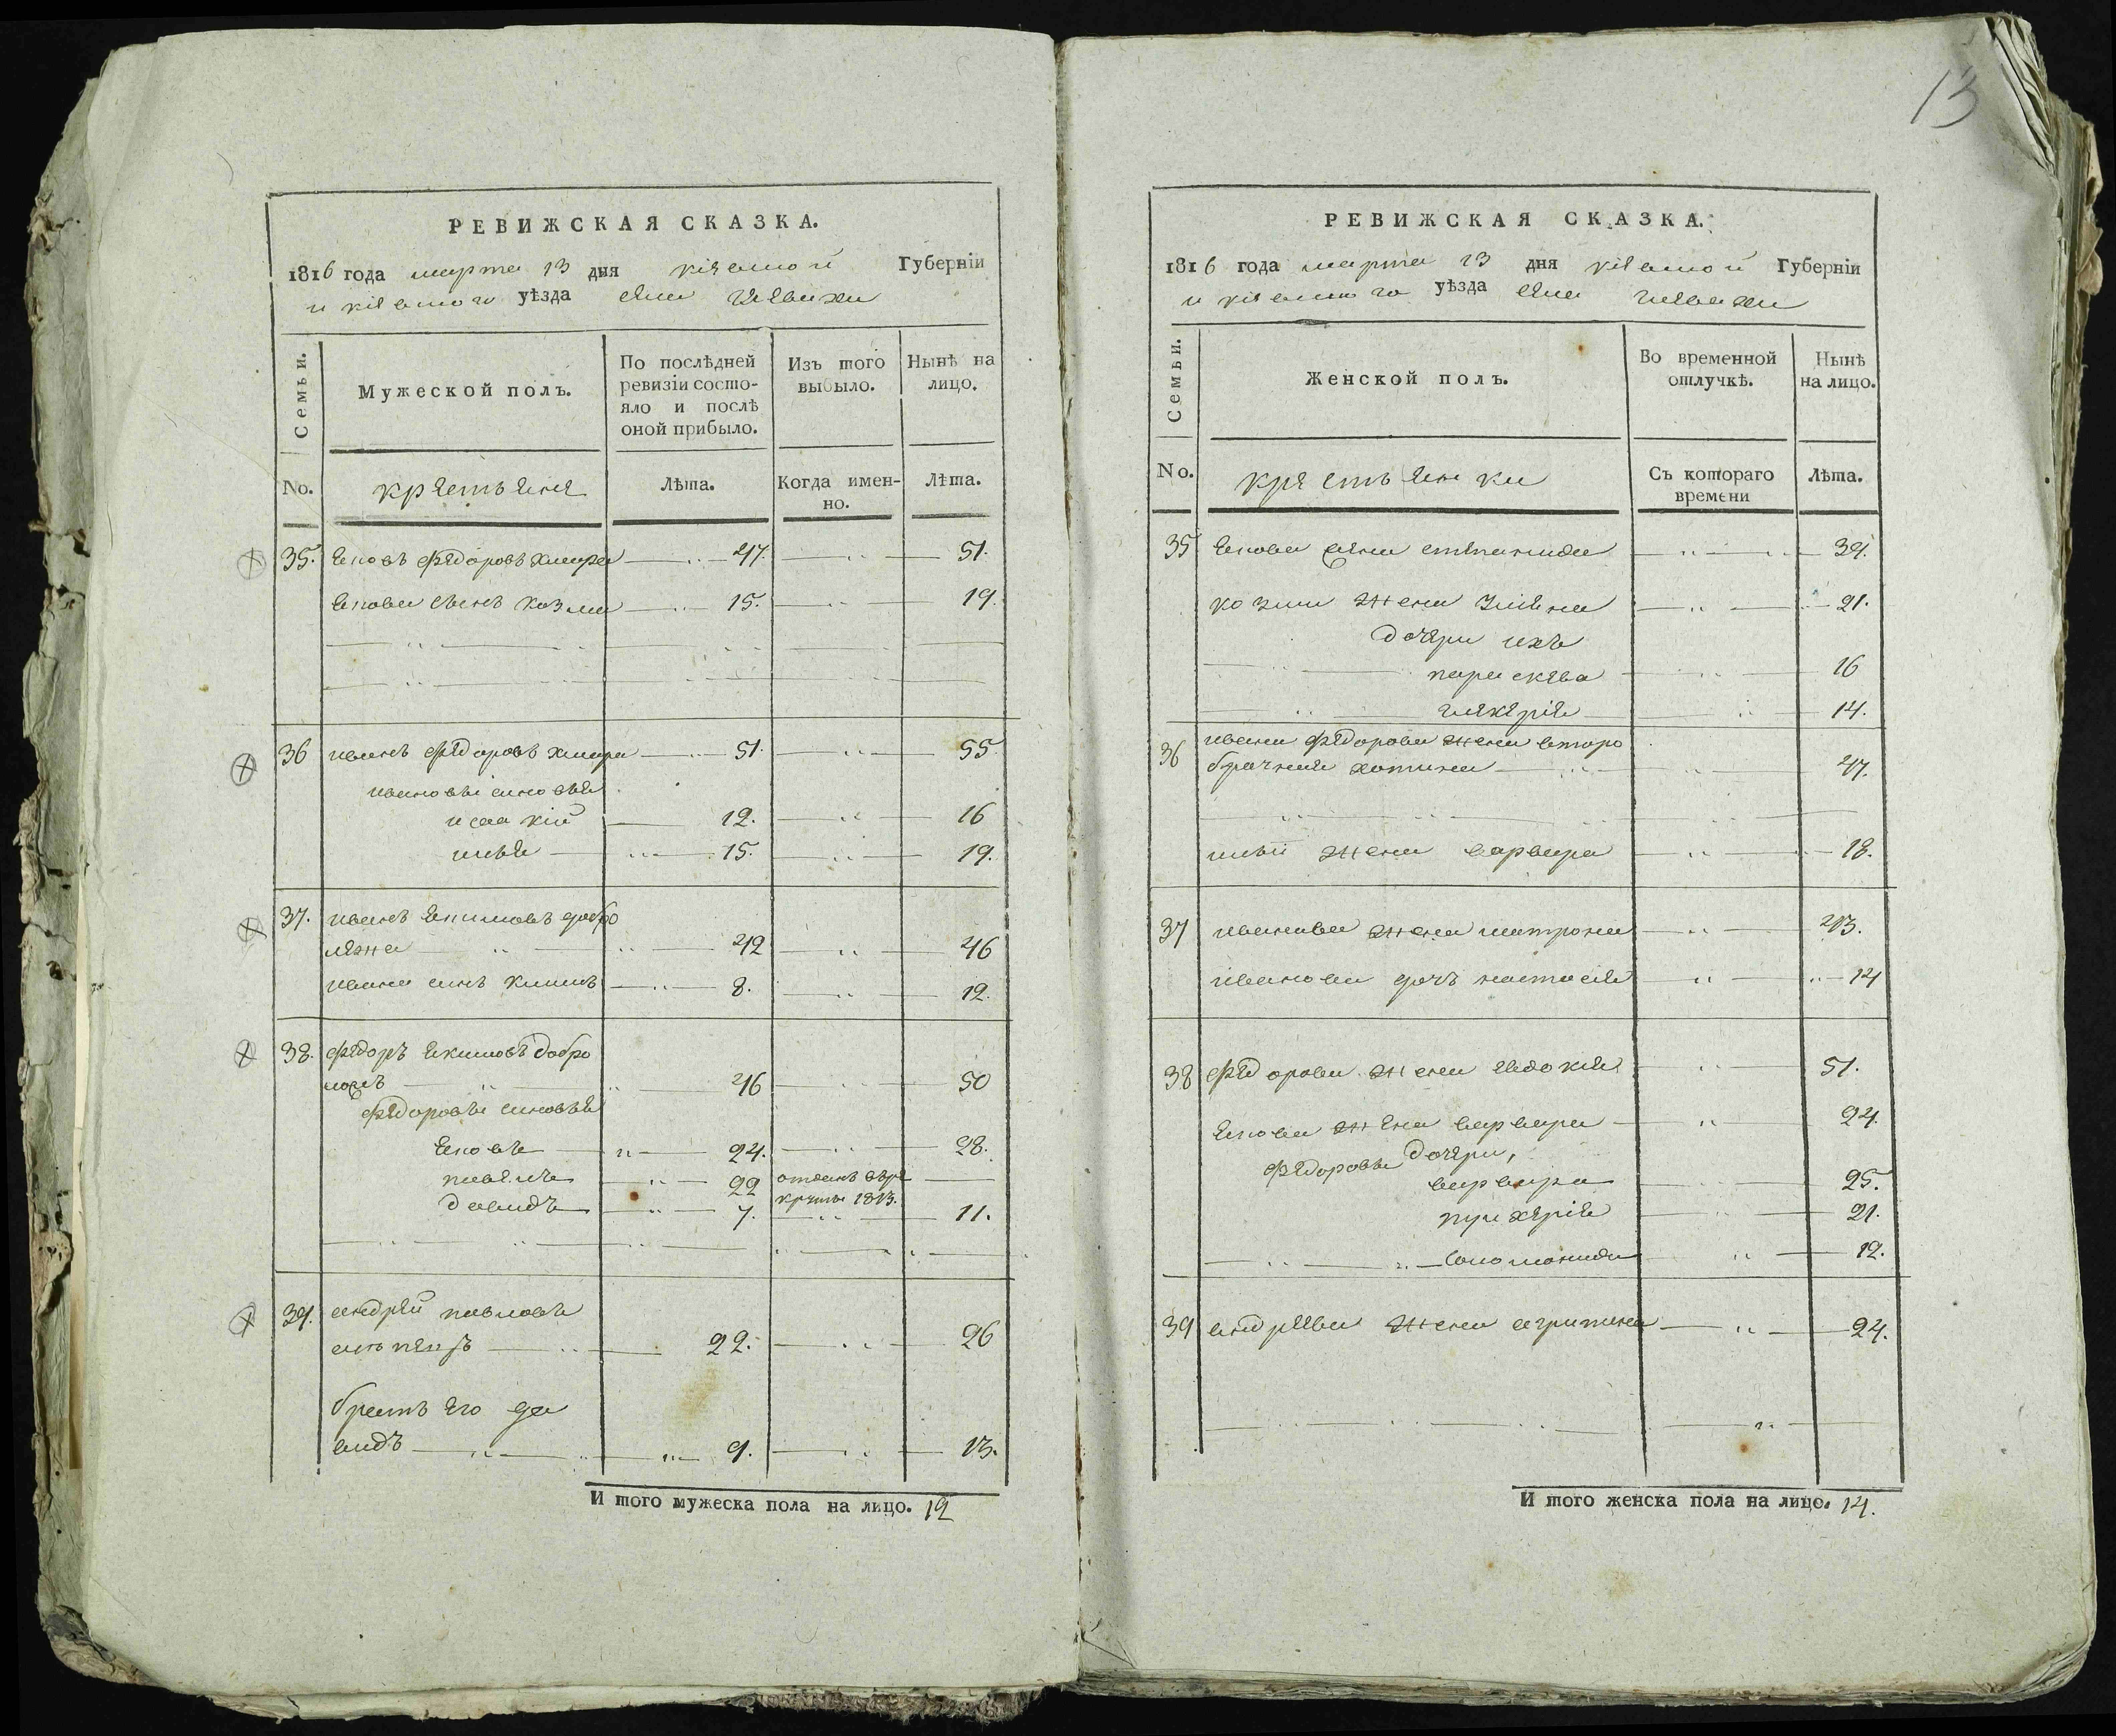 13
РЕВИЖСКАЯ СКАЗКА.
1816 года марта 13 дня кіевской Губерніи
и кіевского уѣзда села
Семьи.
Мужеской полъ.
По послѣдней ревизіи состо-
яло и послѣ
оной прибыло.
Изъ того
выбыло.
Нынѣ на
лицо.
No.
крестьяне
Лѣта.
Когда имен-
но.
Лѣта.
35. Яковъ Федоровъ хмара 47. 51.
Якова сынъ козма 15. 19.
36 иванъ Федоровъ хмара 51. 55.
ивановы синовья
исакій 12. 16
илья 15. 19.
37. иванъ Якимовъ добро
лежа 42 46
ивана синъ климъ 8. 12.
38. Федоръ Якимовъ добро
46 50
Федоровы синовья
Яковъ 24. 28.
павелъ 22
1813.
давидъ 7. 11.
39. андрей павловъ
22. 26
братъ его да
видъ 9. 13.
И того мужеска пола на лицо. 12
РЕВИЖСКАЯ СКАЗКА.
1816 года марта 13 дня кіевской Губерніи
и кіевского уѣзда села
Семьи.
Женской полъ.
Во временной
отлучкѣ.
Нынѣ
на лицо.
No.
крестьянки
Съ котораго
времени
Лѣта.
35 Якова жена степанида 39.
козми жена 21.
дочери ихъ
параскева 16
гликерія 14.
36 ивана Федорова жена второ
брачная хотина 47.
ильи жена варвара 18.
37 иванова жена матрона 43.
иванова дочь настасія 14
38 Федорова жена Явдокія 51.
Якова жена варвара 24.
Федоровы дочери,
варвара 25.
пулхерія 21.
соломонида 12.
39 андреева жена агрипина 24.
И того женска пола на лицо. 14.